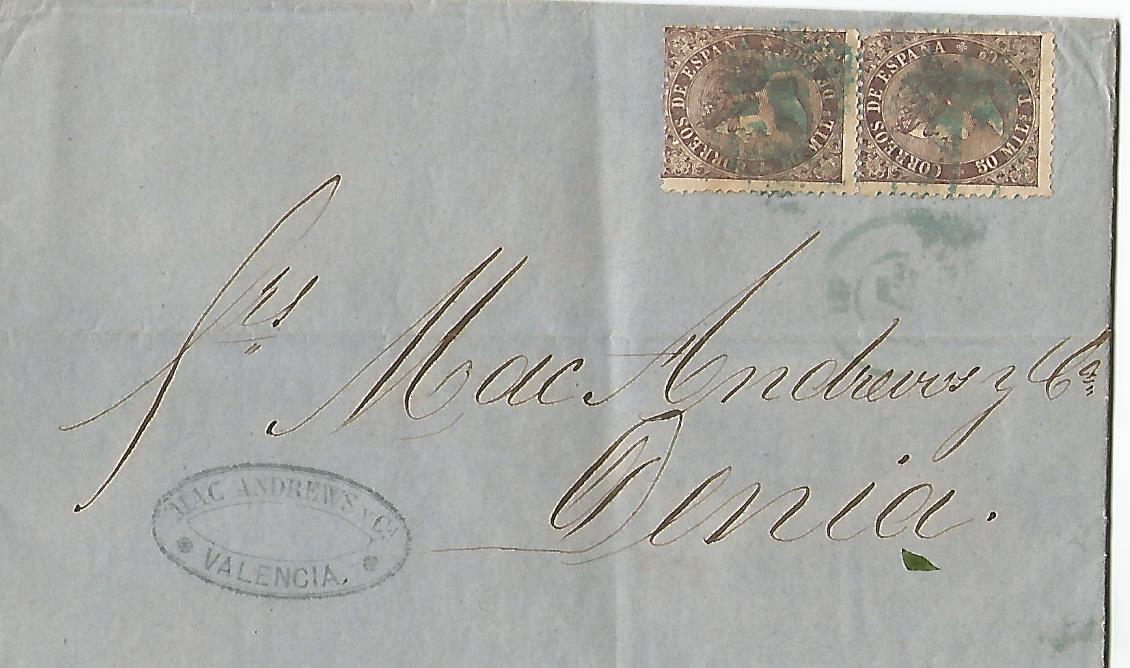 CORREOS DE ESPAÑA
50 MIL.
CORREOS DE ESPAÑA
50 MIL.
Srs Mac Andrews y Ca
Denia.
MAC ANDREWS Y CA
VALENCIA.